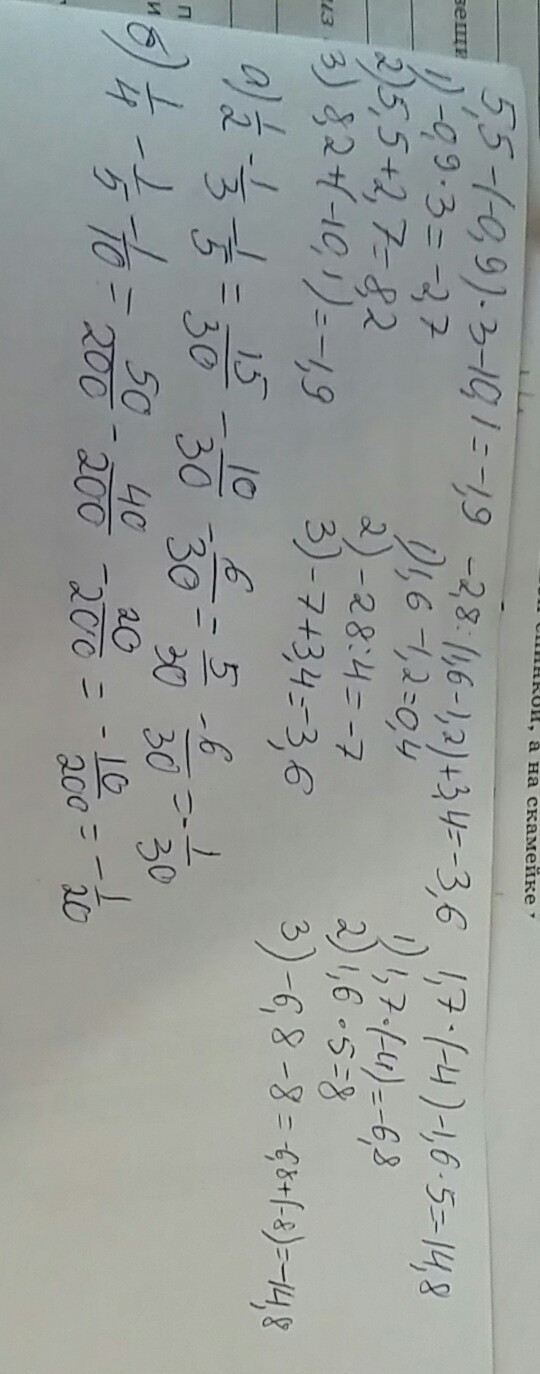 вещи
из
п
и
ой спинкой, а на скамейке
5,5-(-0,9)·3-10,1=-1,9
1) -0,9·3=-2,7
2) 5,5+2,7=8,2
3) 8,2+(-10,1)=-1,9
-2,8:(1,6-1,2)+3,4=-3,6
1) 1,6-1,2=0,4
2) -28:4=-7
3) -7+3,4=-3,6
1,7·(-4)-1,6·5=-14,8
1) 1,7·(-4)=-6,8
2) 1,6·5=8
3) -6,8-8=-6,8+(-8)=-14,8
а) 1/2-1/3-1/5=15/30-10/30-6/30=5/30-6/30=-1/30
б) 1/4-1/5-1/10=50/200-40/200-20/200=-10/200=-1/20